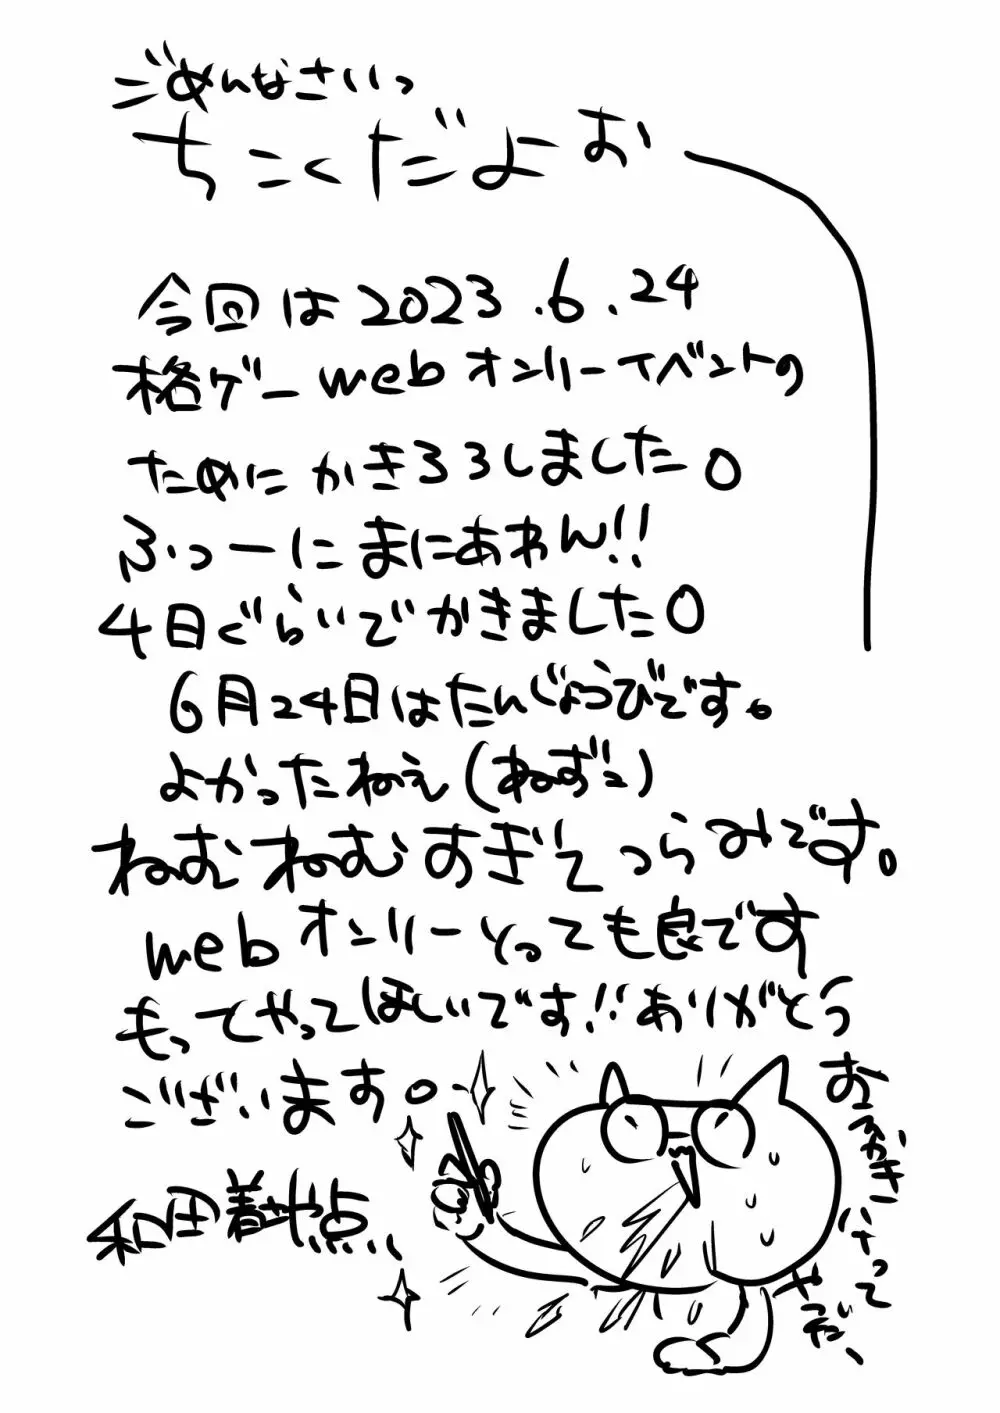 ごめんなさいっ
ちこくだよお
今回は2023.6.24
格ゲーwebオンリーイベントの
ためにかきろろしました。
ふっーにまにあわん!!
4日ぐらいでかきました。
6月24日はたんじょうびです。
よかったねえ(ねずこ)
ねむねむすぎてつらみです。
webオンリーとっても良です
もってやってほしいです!!ありがとう
ございます。
和田着地点
おえかき
はって
やだ、